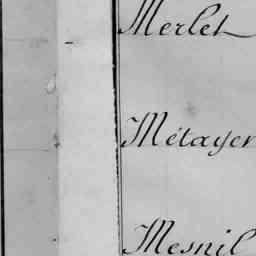 Merlet
Métayer
Mesnil